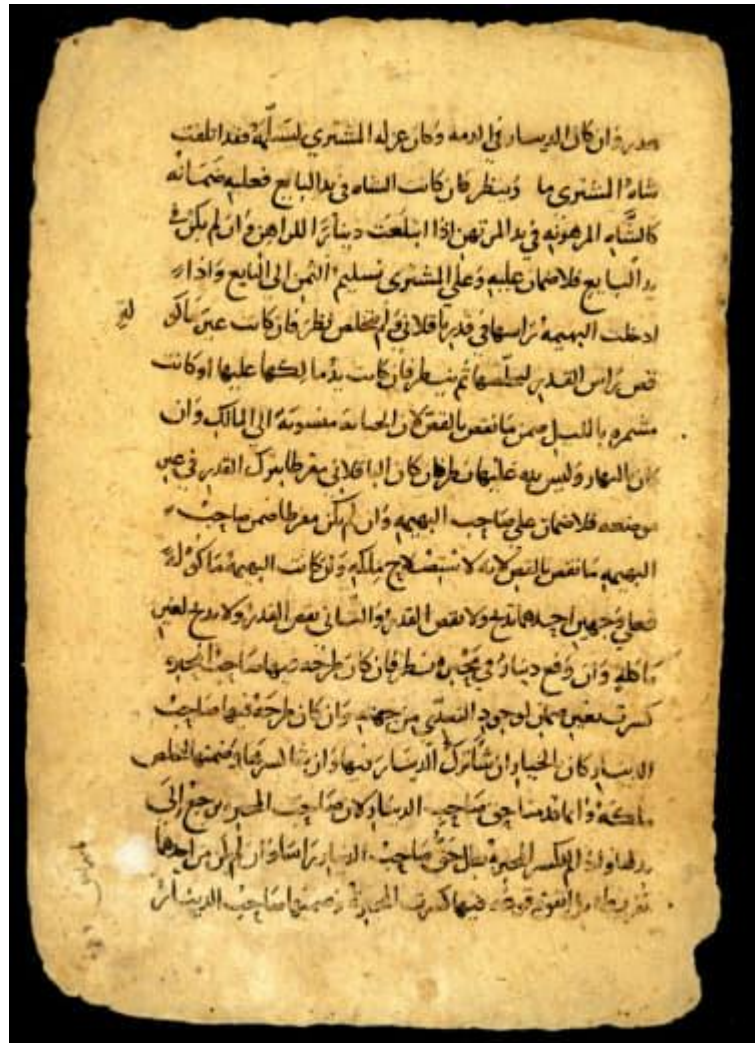 وان كان الدينار في ادمه وكان عزله المشتري ليسلمه فقد اتلفت
شاة المشتري ما وينظر فان كانت الشاه في يد البايع فعليه ضمانه
كالشاه المرهونه في يد المرتهن اذا ابتلعت دينارا للراهن وان لم يكن في
يد البايع فلا ضمان عليه وعلى المشتري تسليم الثمن الى البايع واذا
ادخلت البهيمه راسها في قدر باقلاني ولم يتخلص نظر فان كانت غير ماكو له
قص راس القدر لتخلصها ثم ينظر فان كانت يد مالكها عليها او كانت
بالليل ضمن ما نقص بالقص لان الجنايه منسوبة الى المالك وان
كان بالنهار وليس يده عليها نظر فان كان الباقلاني مفرطا بترك القدر في غير
موضعه فلا ضمان على صاحب البهيمه وان لم يكن مفرطا ضمن صاحب
البهيمه ما نقص بالقص لانه لاستصلاح ملكه ولو كانت البهيمة ماكولة
فعلى وجهين احدهما تذبح ولا يقص القدر والثاني يقص القدر ولا يذبح لغير
ماكله وان وقع دينار في محبره نظر فان كان طرحه فيها صاحب المحبره
كسرت بغير ضمان لوجود التعدي من جهته وان كان طرحه فيها صاحب
الدينار كان بالخيار ان شا ترك الدينار فيها وان شا كسرها وضمنها ليتخلص
ملكه وانما قدمنا حق صاحب الدينار لان صاحب المحبره يرجع الى
بدلها واذا لم تكسر المحبرة بطل حق صاحب الدينار راسا وان لم يكن من احدهما
تفريط وقوعه فيها كسرت المحبرة وضمنها صاحب الدينار